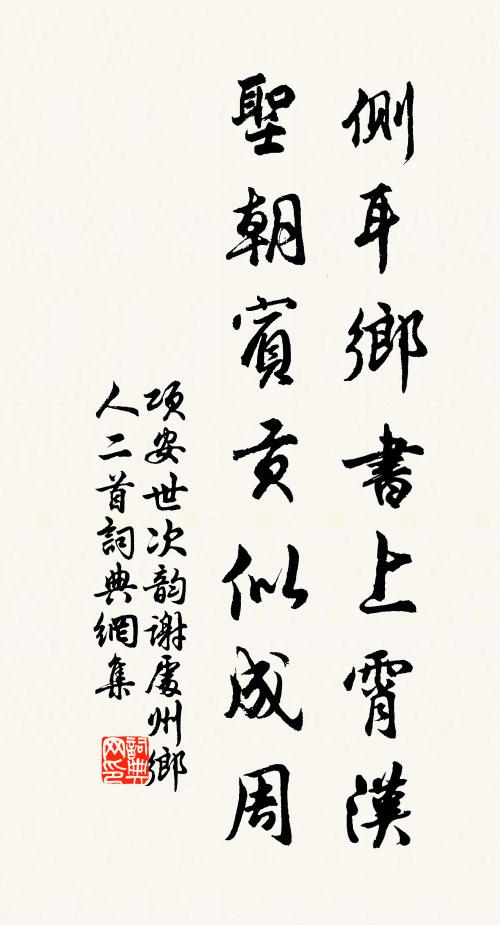 側耳鄉書上霄漢
聖朝賓貢似成周
項安世次韵謝處州鄉
人二首詞典網集
詞典网印